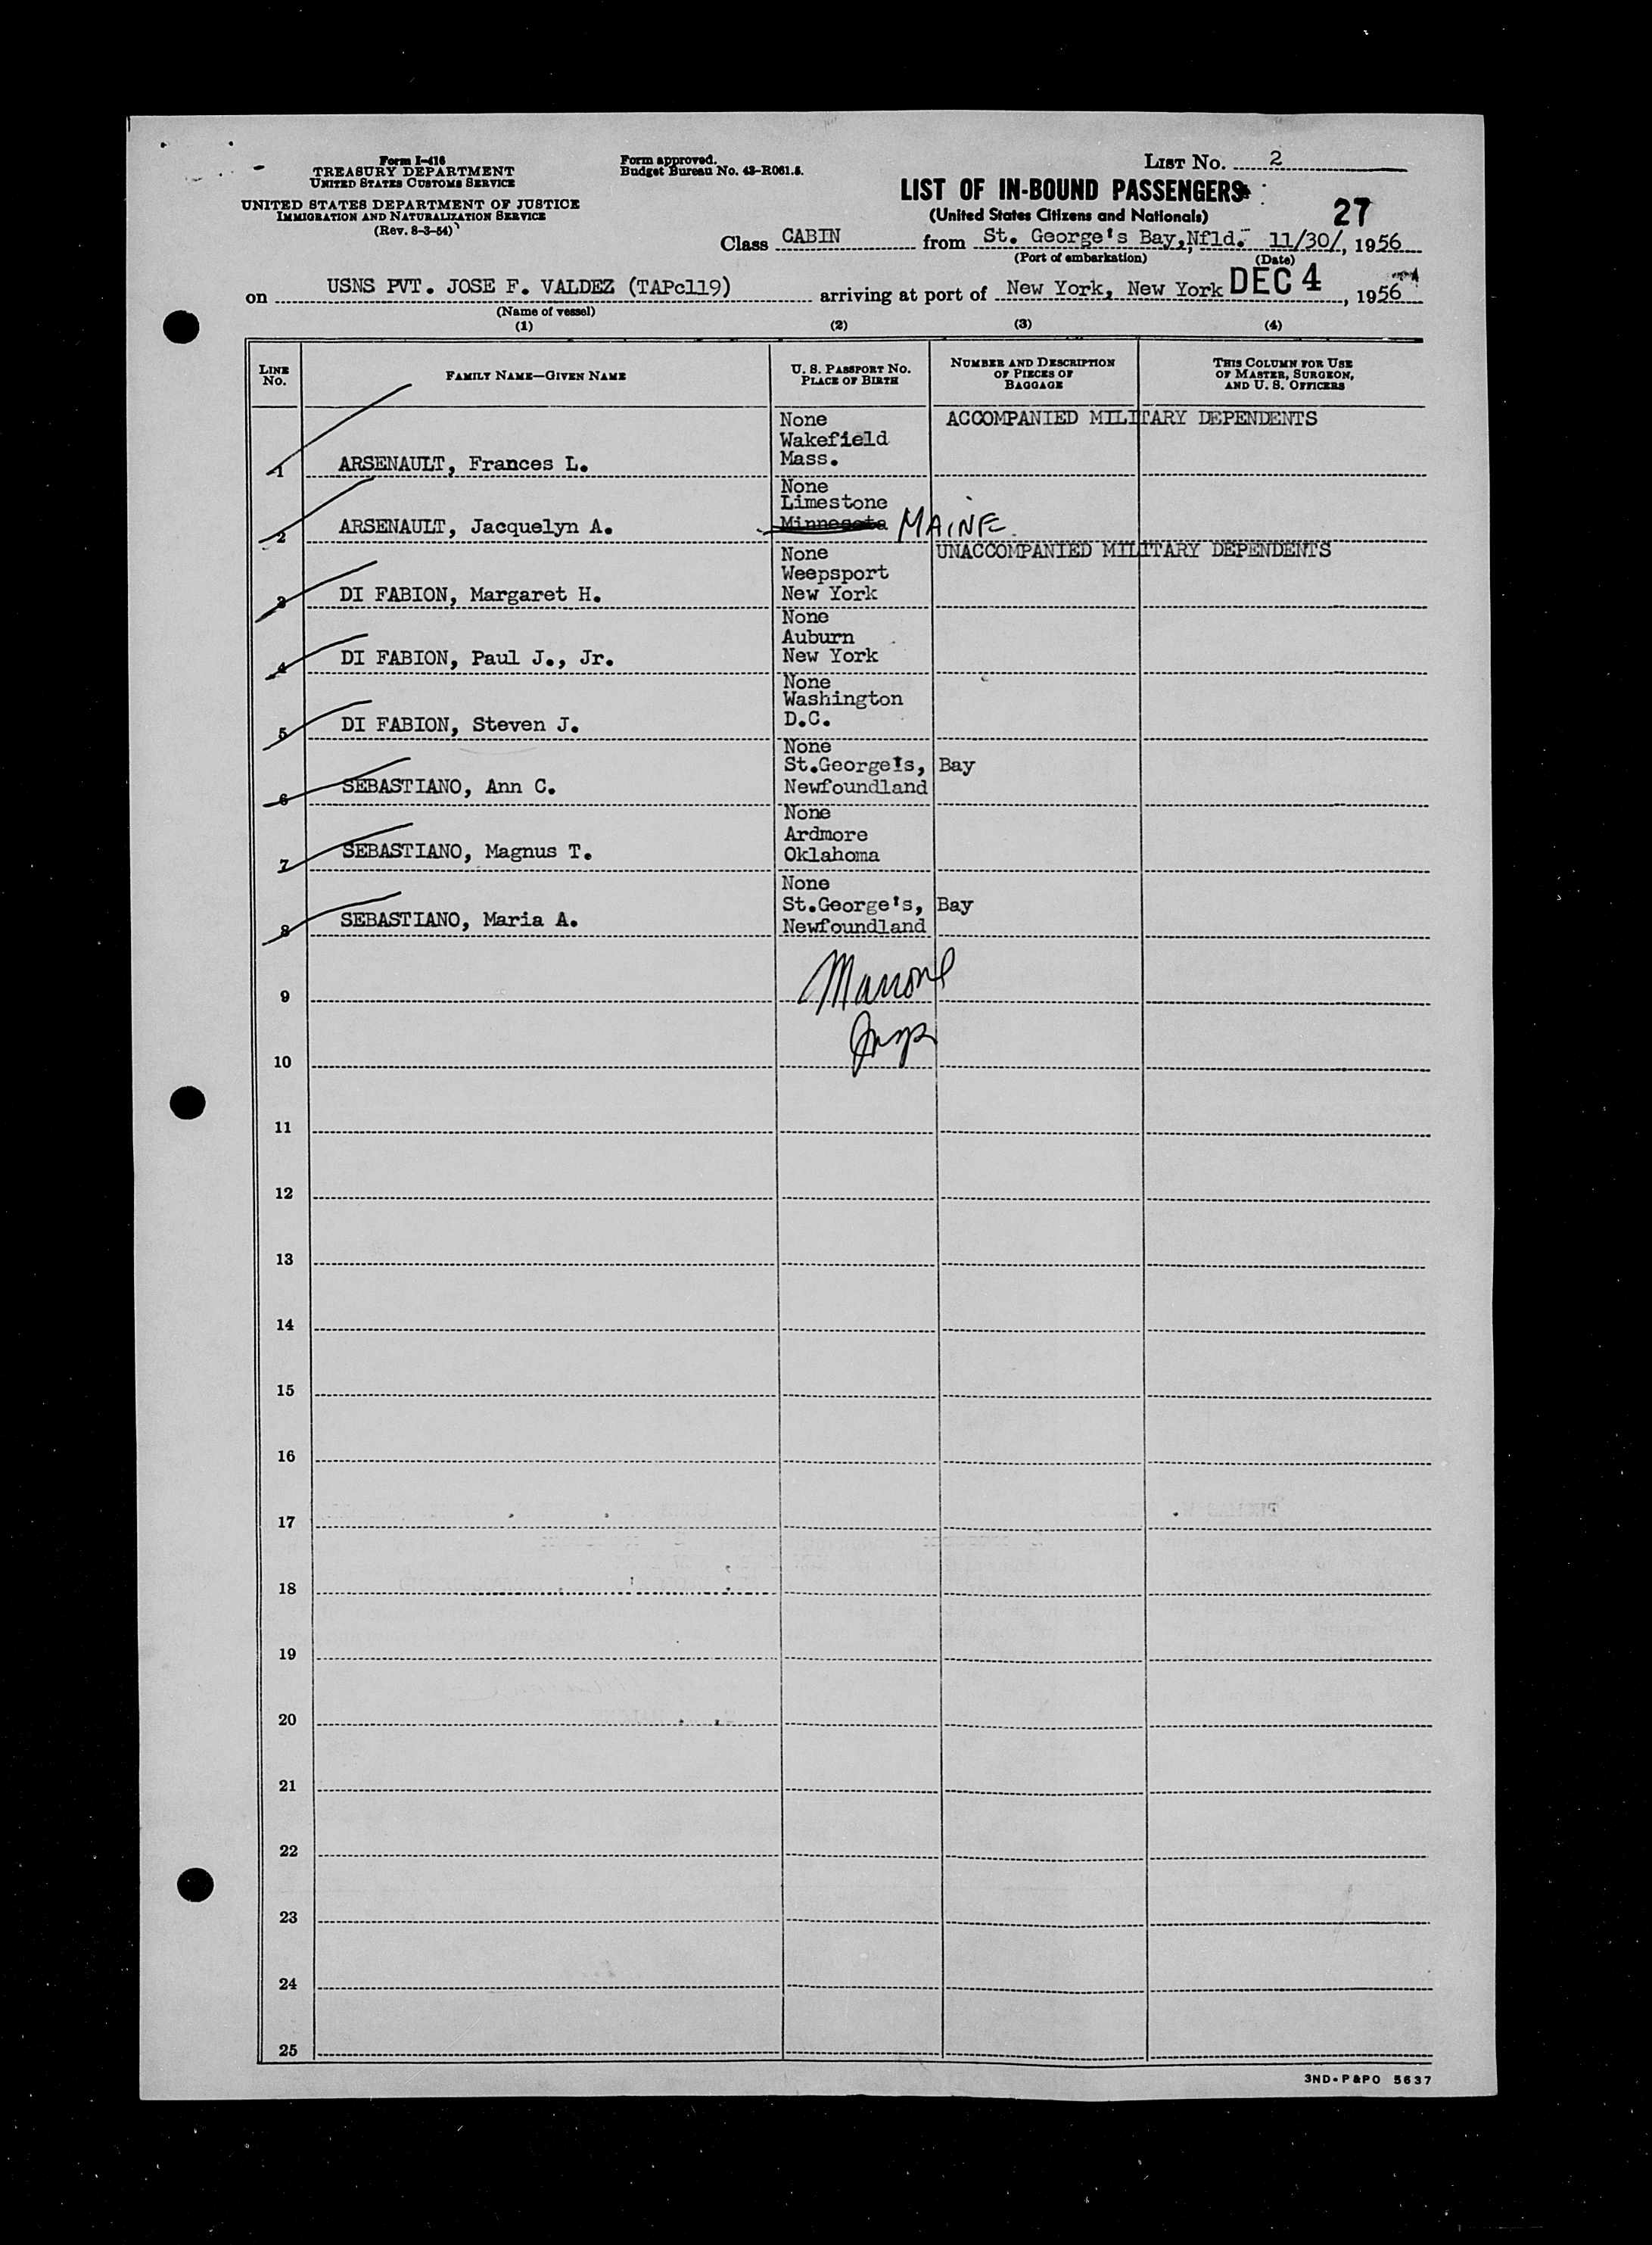 Form I-416
TREASURY DEPARTMENT
UNITED STATES CUSTOMS SERVICE
UNITED STATES DEPARTMENT OF JUSTICE
IMMIGRATION AND NATURALIZATION SERVICE
(Rev. 8-3-54)
Form approved.
Budget Bureau No. 43-R061.5.
LIST NO. 2
LIST OF IN-BOUND PASSENGERS
(United States Citizens and Nationals)
27
Class CABIN from St. George's Bay, Nfld. 11/30/, 1956
(Port of embarkation) (Date)
on USNS PVT. JOSE F. VALDEZ (TAPc119) arriving at port of New York, New York DEC 4, 1956
(Name of vessel)
(1) (2) (3) (4)
LINE NO.
FAMILY NAME—GIVEN NAME
U. S. PASSPORT NO.
PLACE OF BIRTH
NUMBER AND DESCRIPTION
OF PIECES OF
BAGGAGE
THIS COLUMN FOR USE
OF MASTER, SURGEON,
AND U. S. OFFICERS
None ACCOMPANIED MILITARY DEPENDENTS
Wakefield
1 ARSENAULT, Frances L. Mass.
None
Limestone
2 ARSENAULT, Jacquelyn A. Minnesota MAINE
None UNACCOMPANIED MILITARY DEPENDENTS
Weepsport
3 DI FABION, Margaret H. New York
None
Auburn
4 DI FABION, Paul J., Jr. New York
None
Washington
5 DI FABION, Steven J. D.C.
None
St.George's, Bay
6 SEBASTIANO, Ann C. Newfoundland
None
Ardmore
7 SEBASTIANO, Magnus T. Oklahoma
None
St.George's, Bay
8 SEBASTIANO, Maria A. Newfoundland
9
10
11
12
13
14
15
16
17
18
19
20
21
22
23
24
25
3ND-P&PO 5637